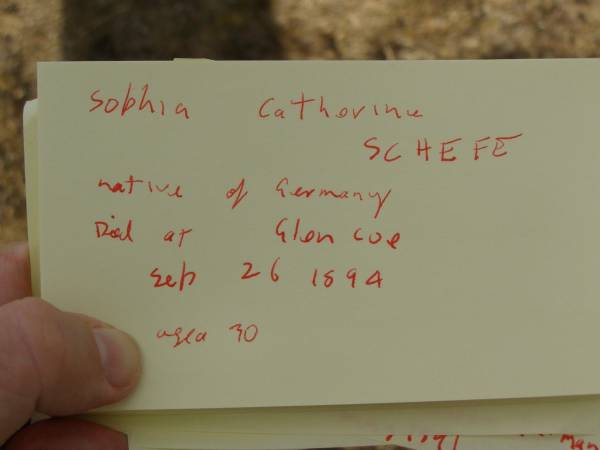 Sophia Catherine
SCHEFE
native of Germany
Died at Glen coe
Sep 26 1894
aged 30
Man